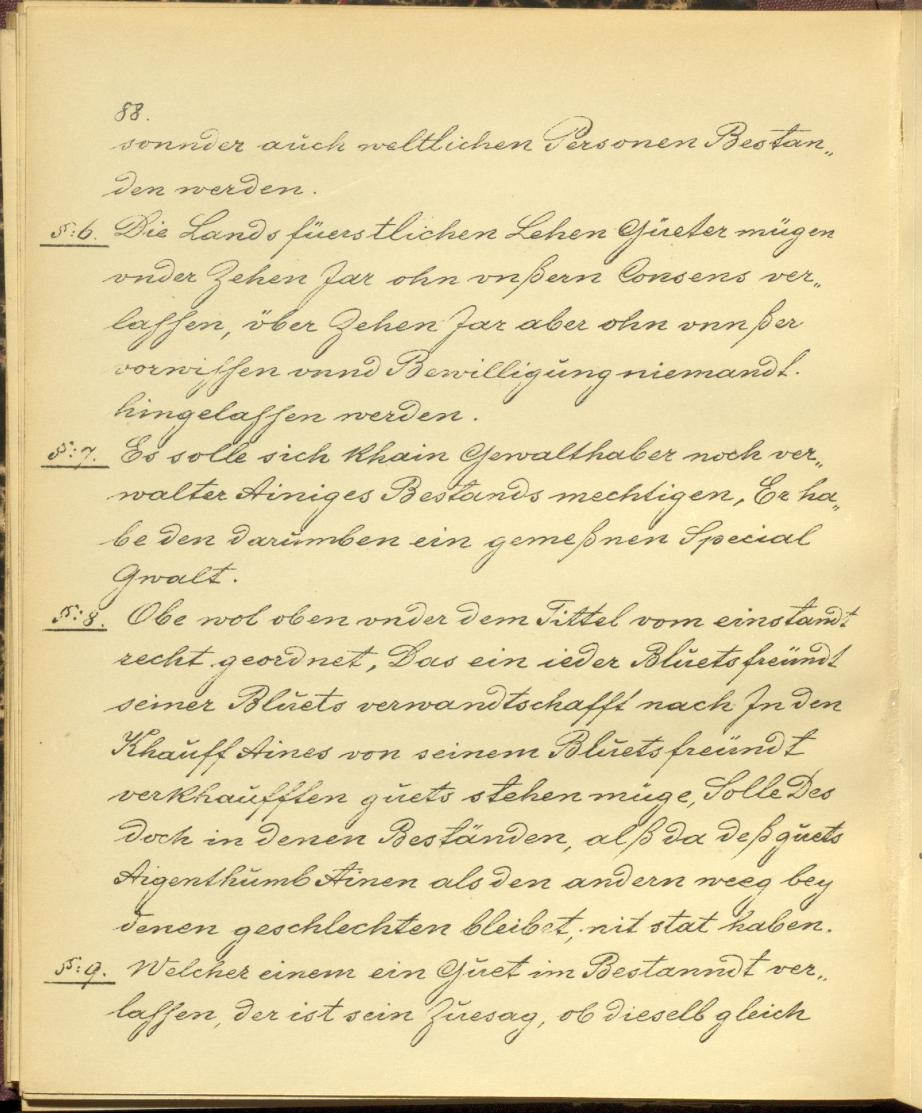 88.
sonnder aŭch weltlichen Personen Bestan„
den werden.
§:6. Die Landsfüerstlichen Lehen Güeter mügen
vnder Zehen Jar ohn vnßern Consens ver„
lassen, über Zehen Jar aber ohn vnnßer
vorwissen vnnd Bewilligŭng niemandt.
hingelassen werden.
§:7. Es solle sich khain Gewalthaber noch ver„
walter Ainiges Bestands mechtigen, Er ha„
be den darŭmben ein gemeßnen Special
Gwalt.
§:8. Obe wol oben vnder dem Tittel vom einstandt
recht geordnet, Das ein ieder Blŭetsfreündt
seiner Blŭets verwandtschafft nach Jn den
Khaŭff Aines von seinem Blŭetsfreündt
verkhaŭfften gŭets stehen müge, Solle Des
doch in denen Beständen, alß da deß gŭets
Aigenthŭmb Ainen als den andern weeg bey
denen geschlechten bleibet, nit stat haben.
§:9. Welcher einem ein Gŭet im Bestanndt ver„
lassen, der ist sein Zŭesag, ob dieselb gleich